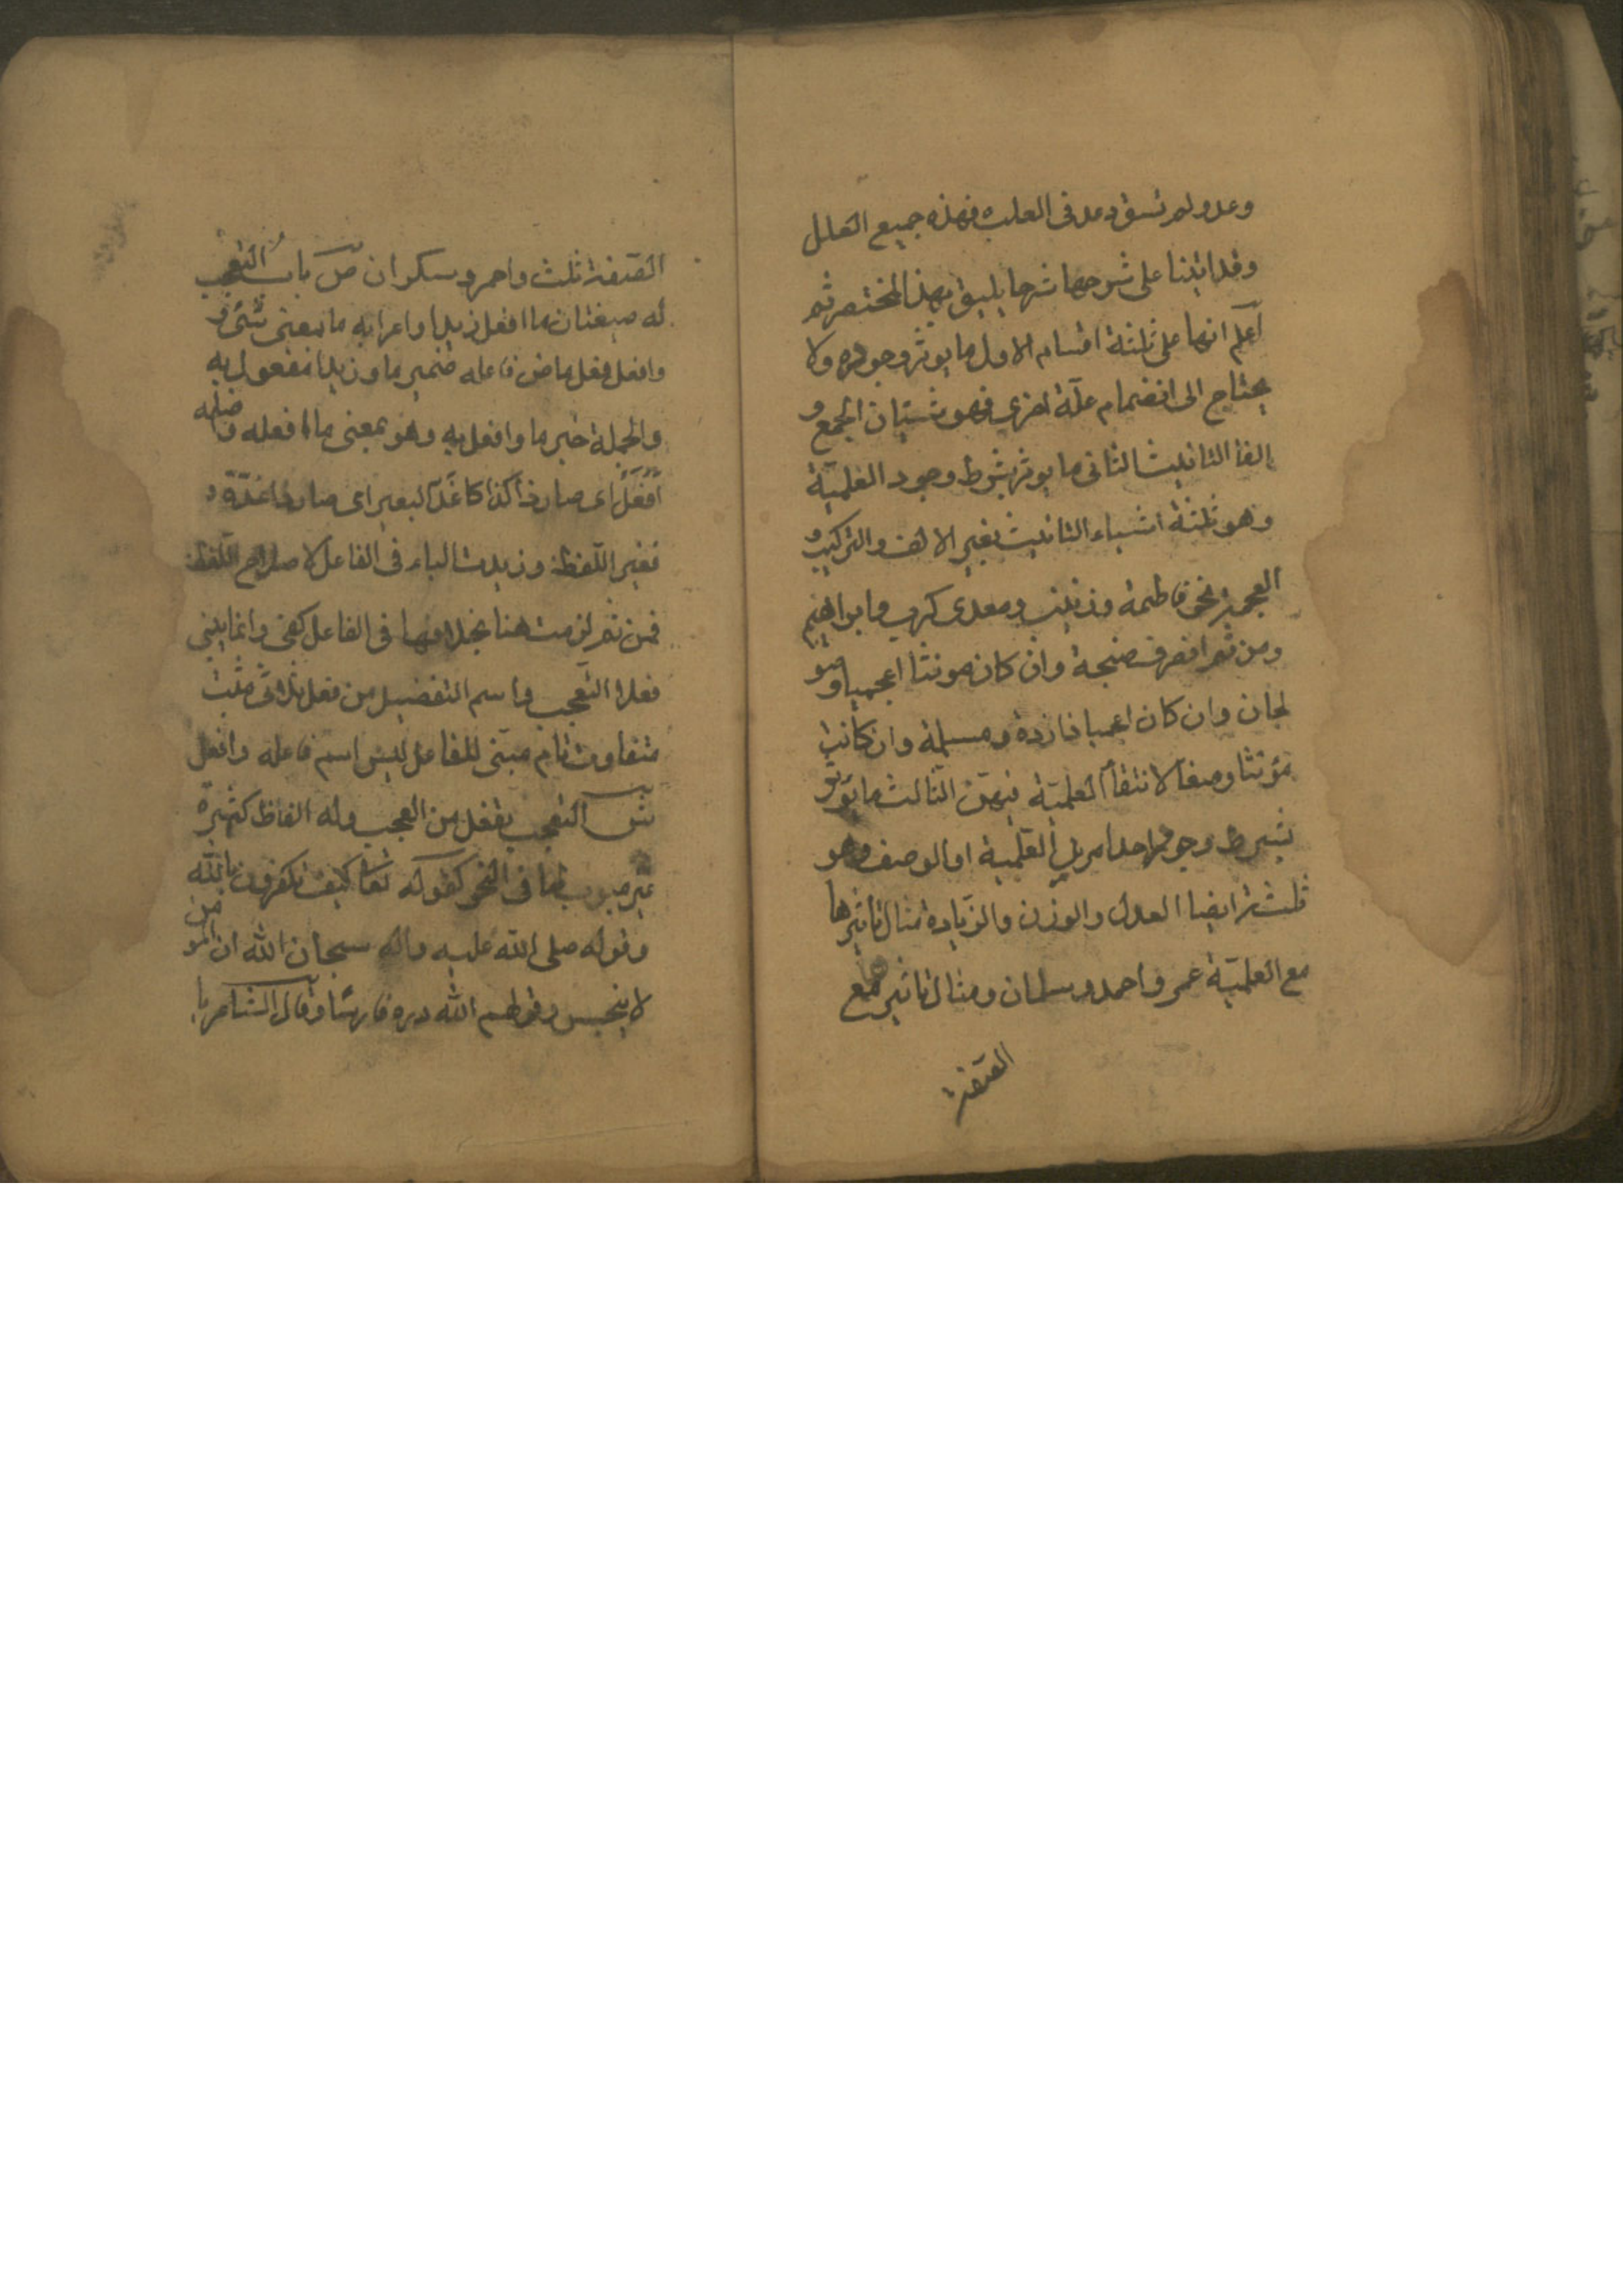 وعد ولم نسق وعد فى العلب فهذه جميع العلل
وقد اتينا على شرحها شرحا يليق بهذا المختصر ثم
اعلم انها على ثلثة اقسام الاول ما يوثر وحده ولا
يحتاج الى انضمام علة اخرى فهو شيئان الجمع و
الفا التانيث الثانى ما يوثر بشرط وجود العلمية
وهو ثلثة اشياء التانيث بغير الالف والتركيب و
العجمة نحو فاطمة وزينب ومعدى كرب وابراهيم
ومن ثم انصرف صنجة وان كان مونثا اعجميا و
لجان وان كان اعجميا ذا زيادة ومسلمة وان كانت
مؤنثا وصفا لانتفاء العلمية فيهن الثالث ما يوثر
بشرط وجود احد امرين العلمية او الوصف وهو
ثلثة ايضا العدل والوزن والزيادة مثال تاثيرها
مع العلمية عمر واحمد وسلمان ومثال تاثيرها مع
الصفة
الصفة ثلث واحمر وسكران ص باب التعجب
له صيغتان ما افعل زيدا واعرابه ما بمعنى شئ و
وافعل فعل ماض فاعله ضمير ما وزيدا مفعول به
والجملة خبر ما وافعل به وهو بمعنى ما افعله واصله
افعل اى صار ذا كذا كاغد البعير اى صار ذا غدة
فغير اللفظ وزيدت الباء فى الفاعل لاصلاح اللفظ
فمن ثم لزمت هنا بخلافها فى الفاعل كفى وانما يبنى
فعلا التعجب واسم التفضيل من فعل ثلاثى مثبت
متفاوت تام مبنى للفاعل ليس اسم فاعله افعل
ش التعجب تفعل من العجب وله الفاظ كثيرة
غير مبوب لها فى النحو كقوله تعا كيف تكفرون بالله
وقوله صلى الله عليه واله سبحان الله ان المومن
لا ينجس وقولهم لله دره فارسا وقال الشاعر يا